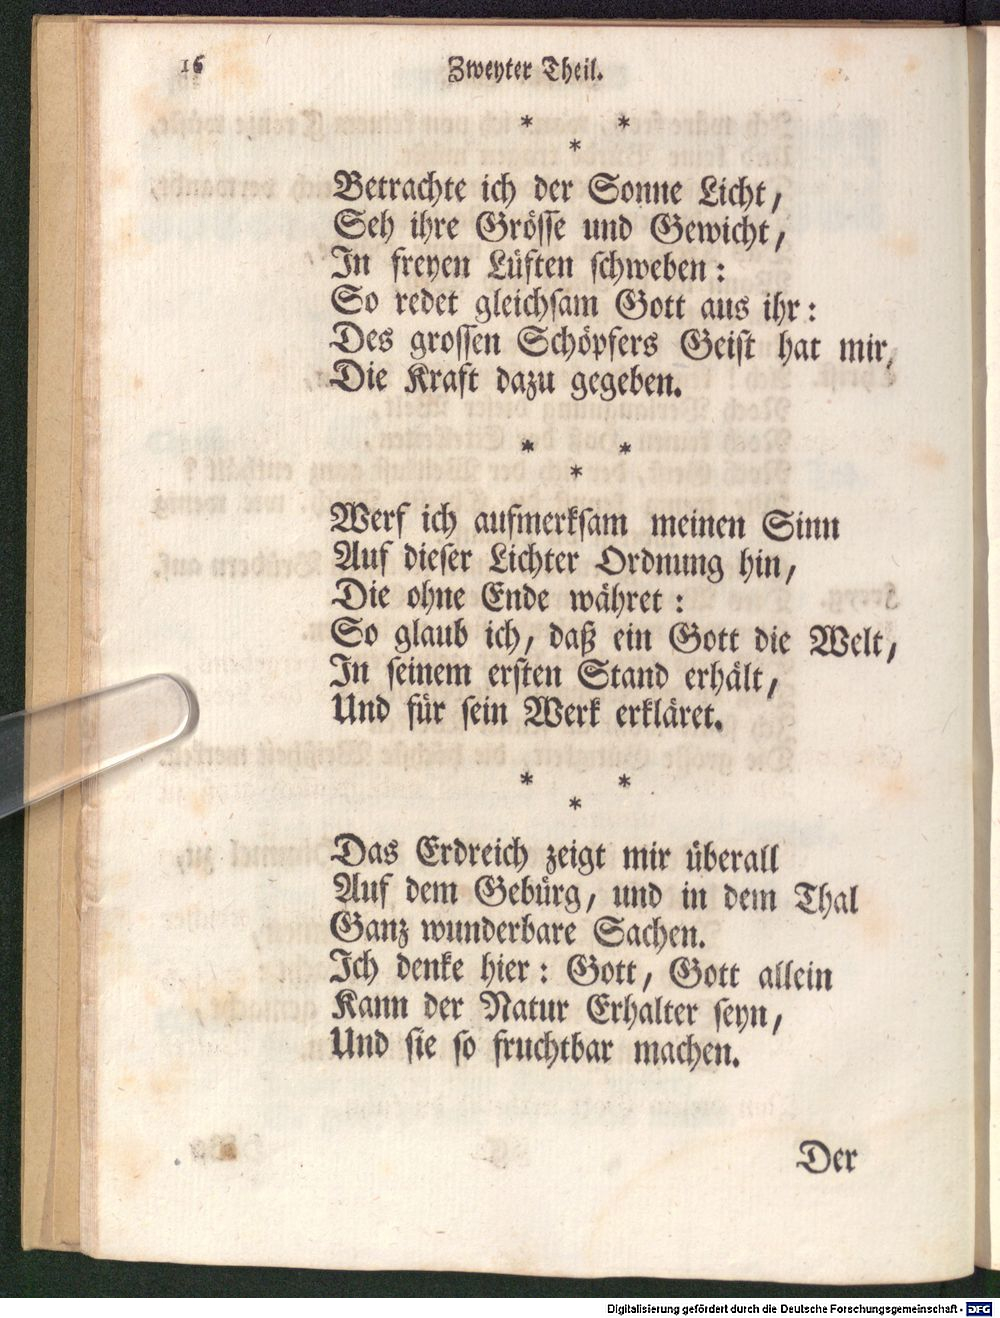 16
Zweyter Theil.
* *
*
Betrachte ich der Sonne Licht,
Seh ihre Grösse und Gewicht,
In freyen Lüften schweben:
So redet gleichsam Gott aus ihr:
Des grossen Schöpfers Geist hat mir,
Die Kraft dazu gegeben.
* *
*
Werf ich aufmerksam meinen Sinn
Auf dieser Lichter Ordnung hin,
Die ohne Ende währet:
So glaub ich, daß ein Gott die Welt,
In seinem ersten Stand erhält,
Und für sein Werk erkläret.
* *
*
Das Erdreich zeigt mir überall
Auf dem Gebürg, und in dem Thal
Ganz wunderbare Sachen.
Ich denke hier: Gott, Gott allein
Kann der Natur Erhalter seyn,
Und sie so fruchtbar machen.
Der
Digitalisierung gefördert durch die Deutsche Forschungsgemeinschaft - DFG